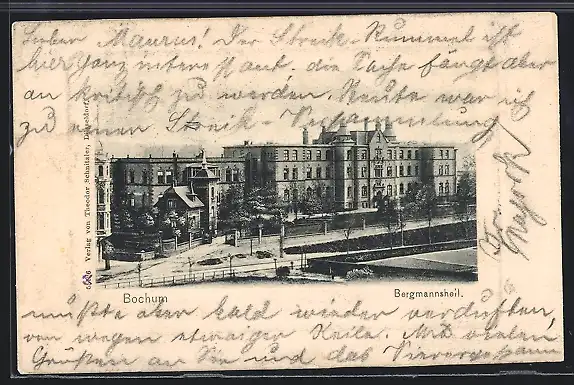 Lieber Maurus! Der Streik-Rummel ist
hier ganz interessant, die Sache fängt aber
an kritisch zu werden. Heute war ich
zu einer Streik-Versammlung
mußte aber bald wieder verduften
von wegen etwaiger Keile. Mit vielen
Grüßen an Sie und das
Verlag von Theodor Schnitzler, Düsseldorf.
Bochum
Bergmannsheil.